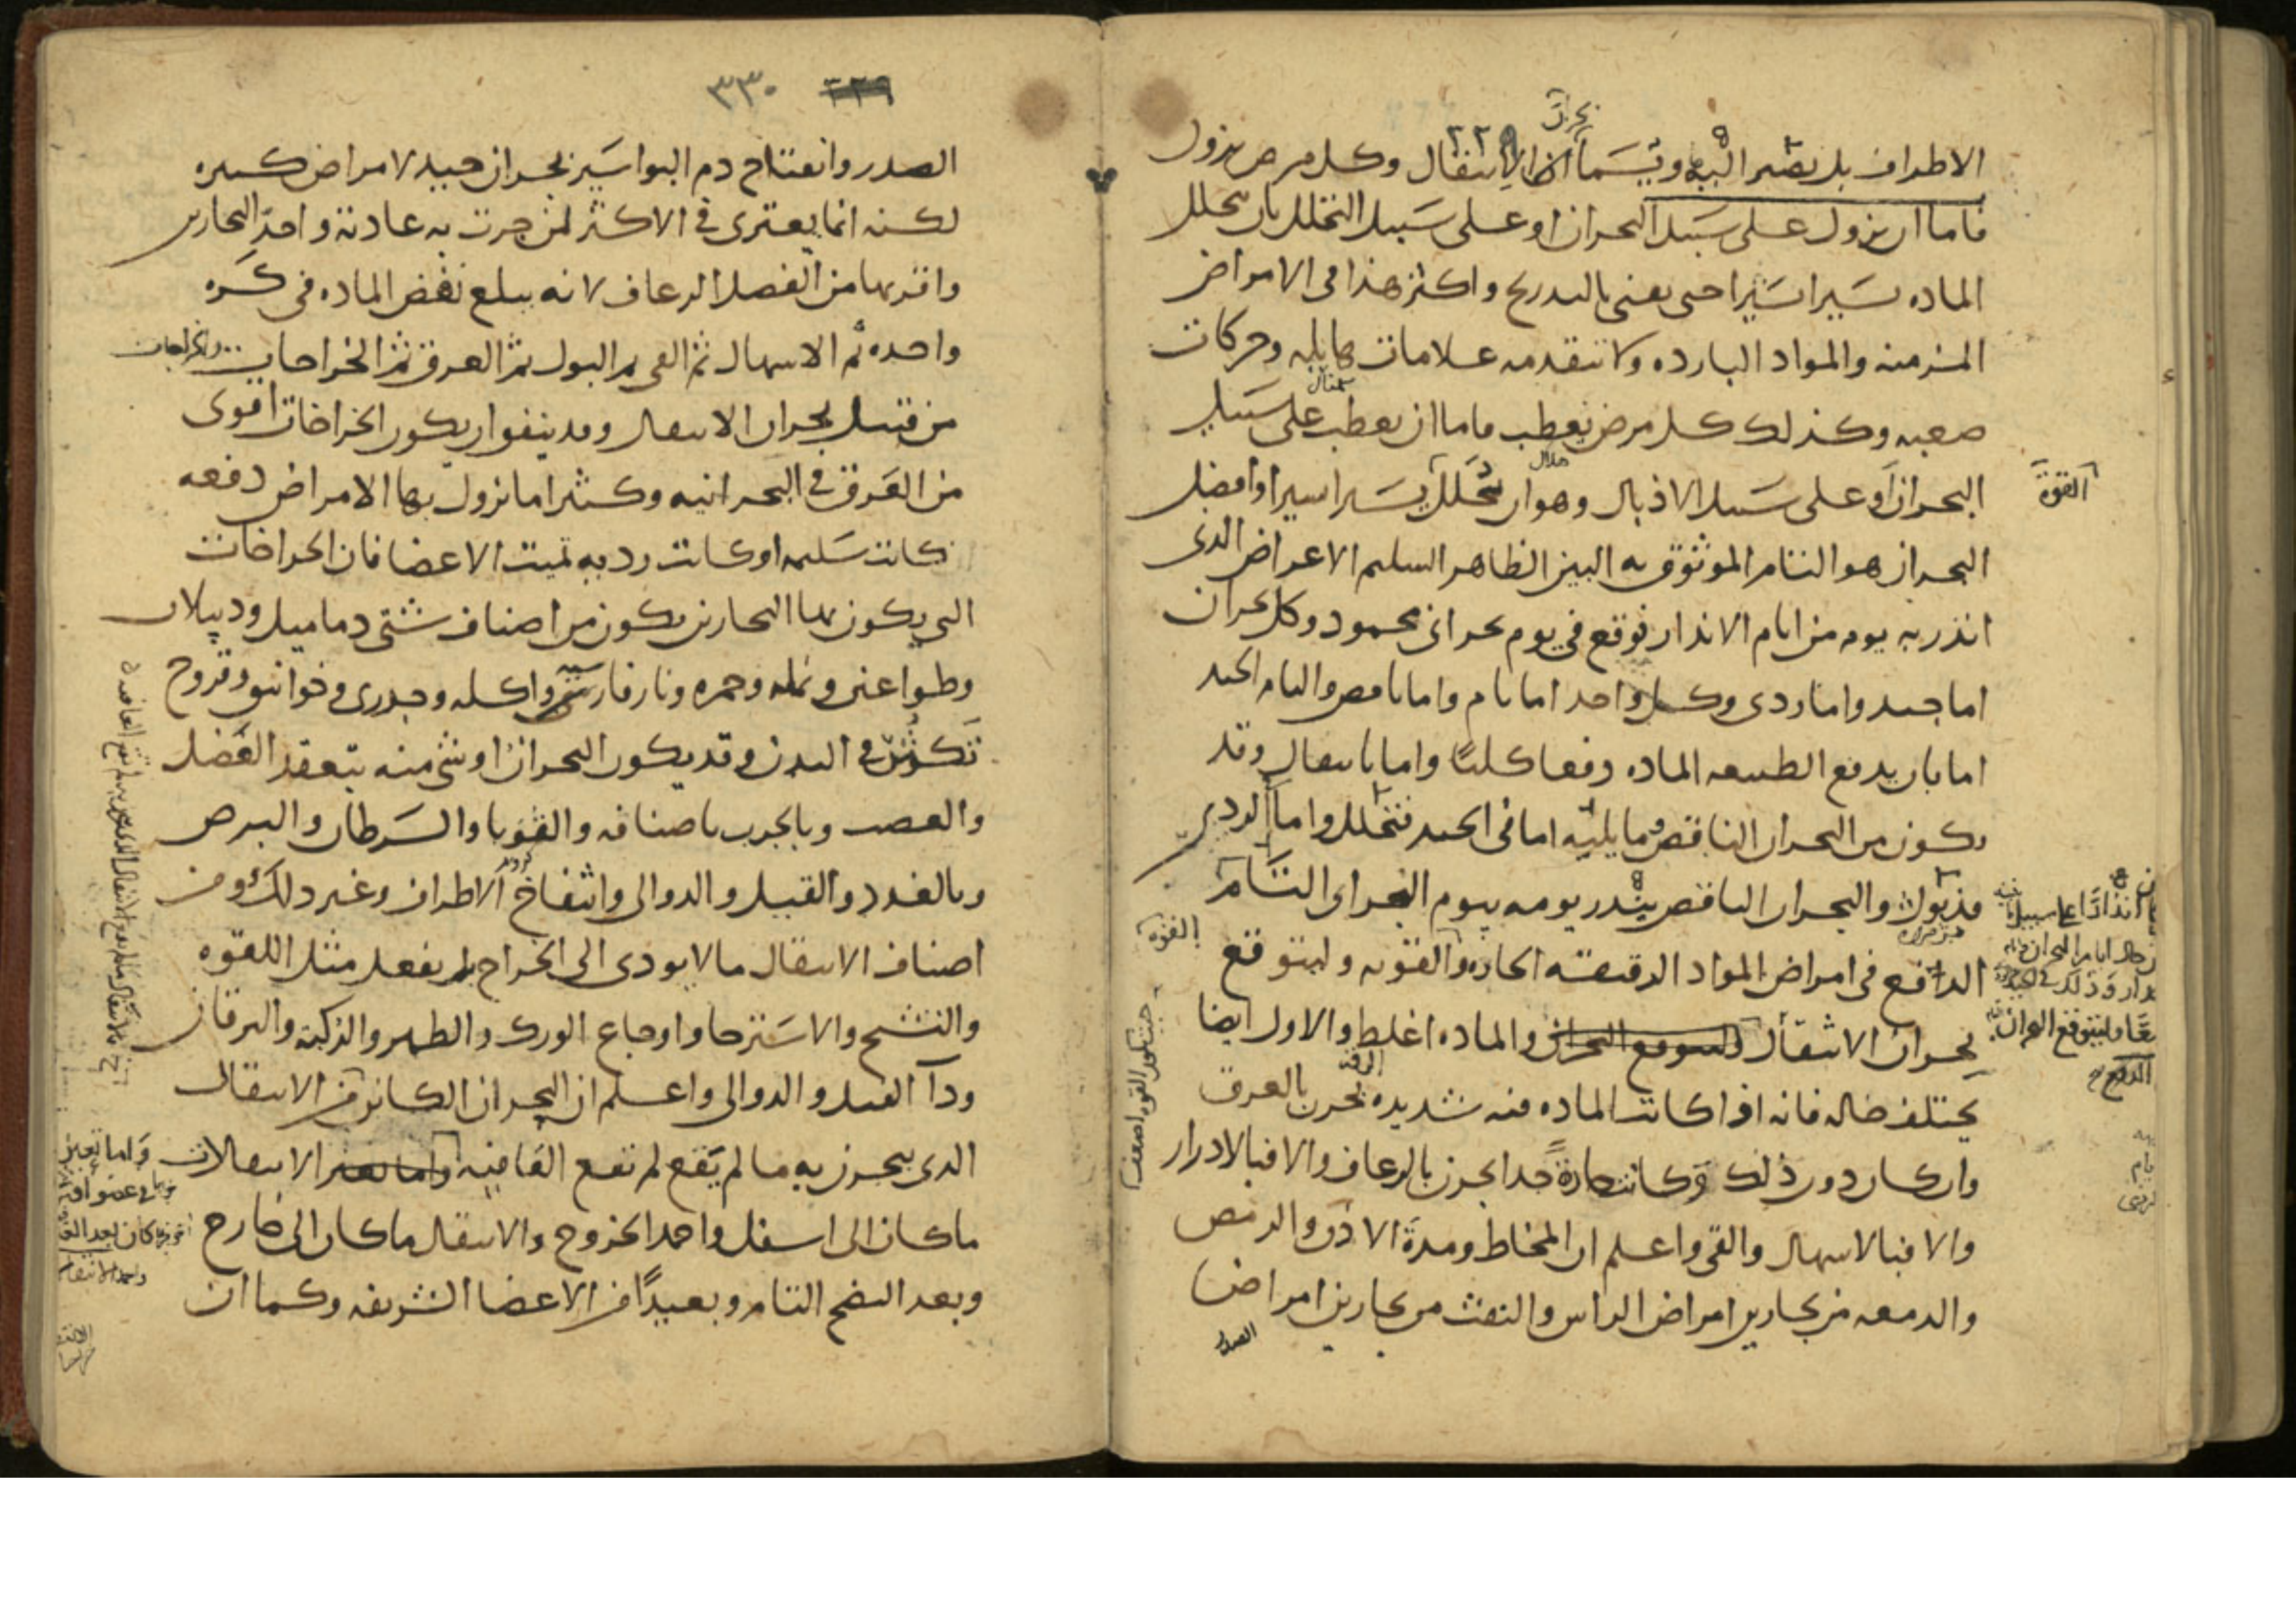 بحران
٣٢٩
الاطراف بل يصير اليه ويسما بحران الانتقال وكل مرض يزول
فاما ان يزول على سبيل البحران او على سبيل التحلل بان يتحلل
الماده يسيرا يسيرا حتى يفنى بالتدريج واكثر هذا فى الامراض
المزمنه والمواد البارده ولا تتقدمه علامات هايله وحركات
صعبه وكذلك كل مرض يعطب فاما ان يعطب على سبيل
البحران او على سبيل الاذبال وهو ان يتحلل يسيرا يسيرا وافضل
القوة
البحران هو التام الموثوق به البين الظاهر السليم الاعراض الذى
انذر به يوم من ايام الانذار فوقع في يوم بحرانى محمود وكل بحران
اما جيد واما ردى وكل واحد اما تام واما ناقص والتام الجيد
اما بان يدفع الطبيعه الماده دفعا كليا واما بانتقال وقد
يكون من البحران الناقص ما يليه اما فى الجيد فتحلل واما الردى
فذبول والبحران الناقص ينذر يومه بيوم البحران التام
الدافع فى امراض المواد الرقيقه الحاره والقويه وليتوقع
القوة
بحران الانتقال والماده اغلظ والاول ايضا
يختلف حاله فانه اذا كانت الماده فيه شديده الرقه بحرن بالعرق
وان كان دون ذلك وكانت حارة جدا بحرن بالرعاف والا فبالادرار
والا فبالاسهال والقى واعلم ان المخاط ومدة الاذن والرمص
والدمعه من بحارين امراض الراس والنفث من بحارين امراض
الصدر
٣٣٠
الصدر وانفتاح دم البواسير بحران جيد لامراض كثيره
لكنه انما يعترى في الاكثر لمن جرت به عادته واحد البحارين
واقربها من الفصل الرعاف لانه يبلغ نفض الماده فى كره
واحده ثم الاسهال ثم القى ثم البول ثم العرق ثم الخراجات والخراجات
من قبيل بحران الانتقال وقد يتفق ان يكون الخراجات اقوى
من العرق في البحرانيه وكثيرا ما تزول بها الامراض دفعه
كانت سليمه او كانت رديه تميت الاعضا فان الخراجات
التي يكون بها البحارين يكون من اصناف شتى دماميل ودبيلات
وطواعين ونمله وحمره ونار فارسيه واكله وجدرى وخوانيق وقروح
تكثر في البدن وقد يكون البحران او شى منه بتعقد العضل
والعصب وبالجرب باصنافه والقوبا والسرطان والبرص
وبالغدد والقيل والدوالى وانتفاخ الاطراف وغير ذلك ومن
اصناف الانتقال ما لا يودى الى الخراج بل يفعل مثل اللقوه
والتشنج والاسترخا واوجاع الورك والظهر والركبة واليرقان
ودآ الفيل والدوالى واعلم ان البحران الكائن من الانتقال
الذى يبحرن به ما لم يقع لم تقع العافيه الانتقالات
ماكان الى اسفل واحمد الخروج والانتقال ماكان الى خارج
وبعد النضج التام وبعيدا من الاعضا الشريفه وكما ان